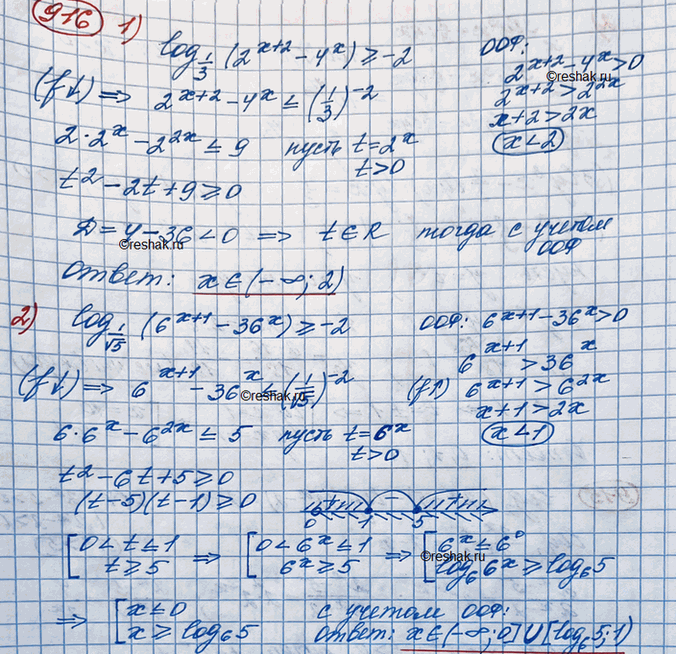 916 1)
log_{1/3} (2^{x+2} - 4^x) ≥ -2
ООФ:
2^{x+2} - 4^x > 0
©reshak.ru
2^{x+2} > 2^{2x}
x+2 > 2x
x < 2
(f↓) ⇒ 2^{x+2} - 4^x ≤ (1/3)^{-2}
2·2^x - 2^{2x} ≤ 9 пусть t = 2^x
t > 0
t² - 2t + 9 ≥ 0
Д = 4 - 36 < 0 ⇒ t ∈ R тогда с учетом
ООФ
©reshak.ru
Ответ: x ∈ (-∞; 2)
2) log_{1/√5} (6^{x+1} - 36^x) ≥ -2
ООФ: 6^{x+1} - 36^x > 0
6^{x+1} > 36^x
(f↑) 6^{x+1} > 6^{2x}
x+1 > 2x
x < 1
(f↓) ⇒ 6^{x+1} - 36^x ≤ (1/√5)^{-2}
©reshak.ru
6·6^x - 6^{2x} ≤ 5 пусть t = 6^x
t > 0
t² - 6t + 5 ≥ 0
(t-5)(t-1) ≥ 0
+ - +
0 1 5
[ 0 < t ≤ 1 ⇒ [ 0 < 6^x ≤ 1 ⇒ [ 6^x ≤ 6^0
t ≥ 5 6^x ≥ 5 log_6 6^x ≥ log_6 5
©reshak.ru
⇒ [ x ≤ 0 с учетом ООФ:
x ≥ log_6 5 Ответ: x ∈ (-∞; 0] ∪ [log_6 5; 1)